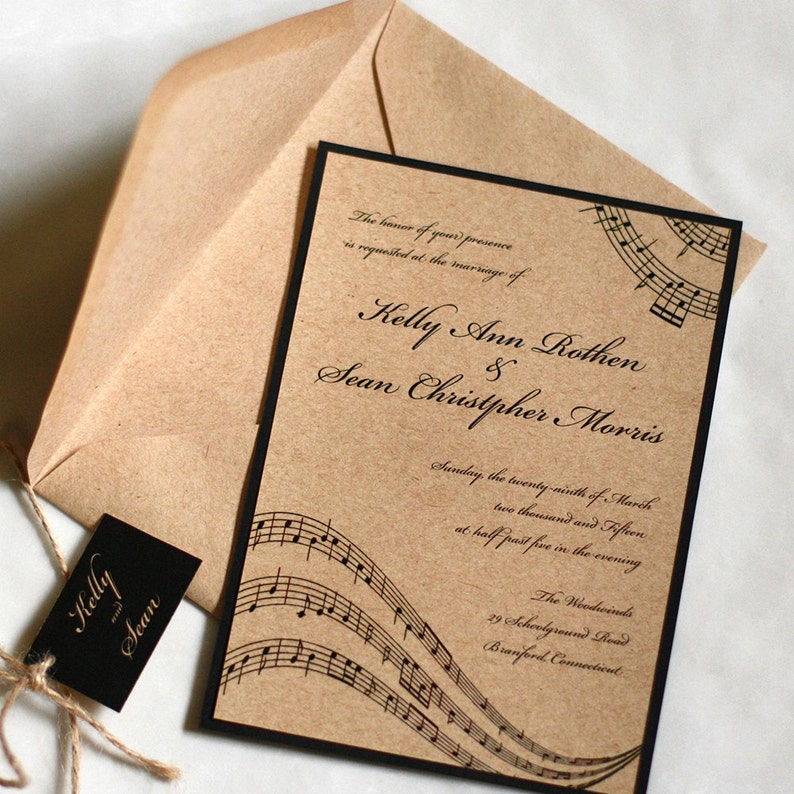 The honor of your presence
is requested at the marriage of
Kelly Ann Rothen
&
Sean Christpher Morris
Sunday, the twenty-ninth of March
two thousand and Fifteen
at half past five in the evening
The Woodwinds
29 Schoolground Road
Branford, Connecticut
Kelly
and
Sean